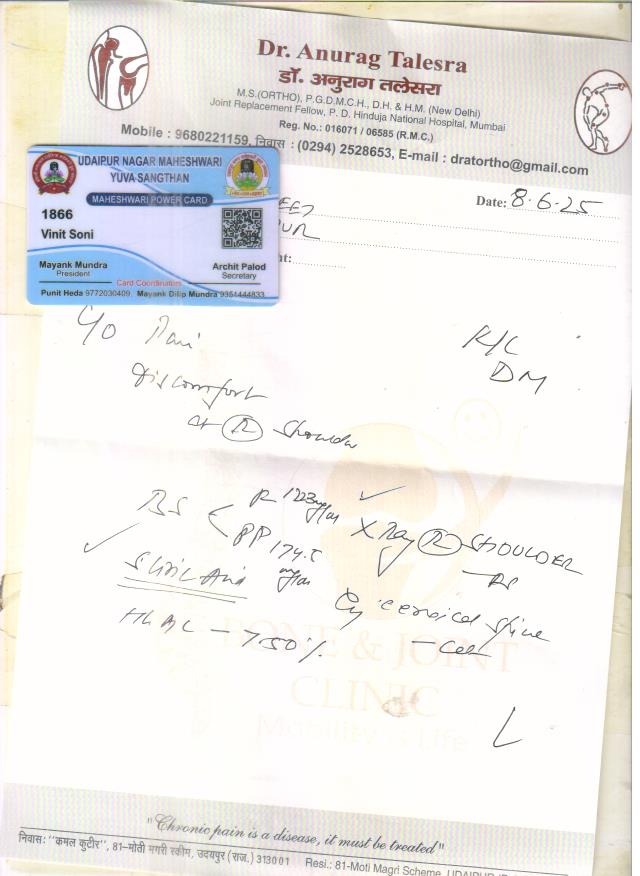 Dr. Anurag Talesra
डॉ. अनुराग तलेसरा
M.S.(ORTHO), P.G.D.M.C.H., D.H. & H.M. (New Delhi)
Joint Replacement Fellow, P. D. Hinduja National Hospital, Mumbai
Reg. No.: 016071 / 06585 (R.M.C.)
Mobile : 9680221159, निवास : (0294) 2528653, E-mail : dratortho@gmail.com
Date: 8.6.25
UDAIPUR NAGAR MAHESHWARI
YUVA SANGTHAN
MAHESHWARI POWER CARD
1866
Vinit Soni
Mayank Mundra
President
Archit Palod
Secretary
Card Coordinators
Punit Heda 9772030409, Mayank Dilip Mundra 9351444833
C/O Pain
Discomfort
at R Shoulder
K/C
DM
BS
F 123 mg/dl
PP 174.5 mg/dl
S. Uric Acid
HbA1C - 7.50%
X Ray R SHOULDER
cervical spine
BONE & JOINT
CLINIC
Mobility is Life
"Chronic pain is a disease, it must be treated"
निवास: "कमल कुटीर", 81-मोती मगरी स्कीम, उदयपुर (राज.) 313001 Resi.: 81-Moti Magri Scheme, UDAIPUR